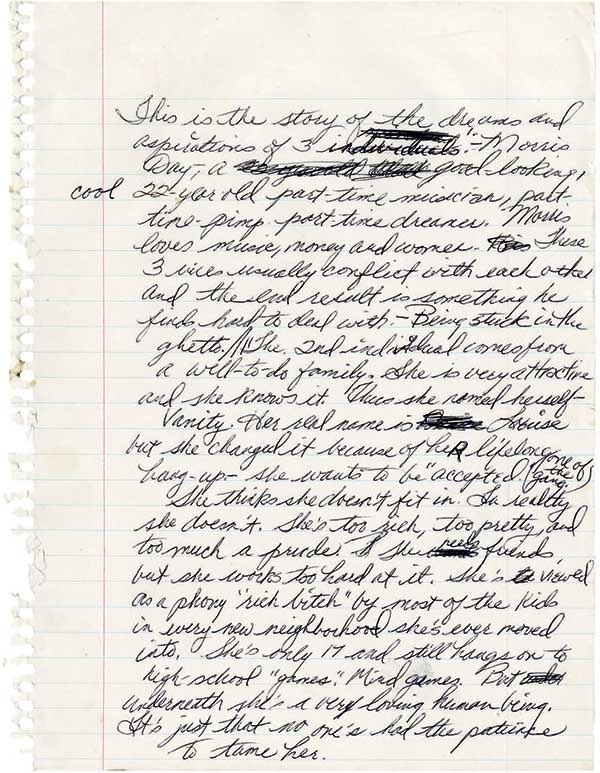 This is the story of the dreams and
aspirations of 3 individuals.—Morris
Day—, a good-looking,
cool 22-year old part-time musician, part-
time-pimp part-time dreamer. Morris
loves music, money and women. These
3 vices usually conflict with each other
and the end result is something he
finds hard to deal with.—Being stuck in the
ghetto. // The 2nd individual comes from
a will-to-do family. She is very attractive
and she knows it. Thus she named herself—
Vanity. Her real name is Louise
but she changed it because of heR lifelong
hang-up— she wants to be "accepted (one of the gang.)
She thinks she doesn't fit in. In reality
she doesn't. She's too rich, too pretty, and
too much a prude. She needs friends
but she works too hard at it. She's viewed
as a phony "rich bitch" by most of the kids
in every new neighborhood she's ever moved
into. She's only 17 and still hangs on to
high-school "games." Mind games. But
underneath she's a very loving human being.
It's just that no one's had the patience
to tame her.